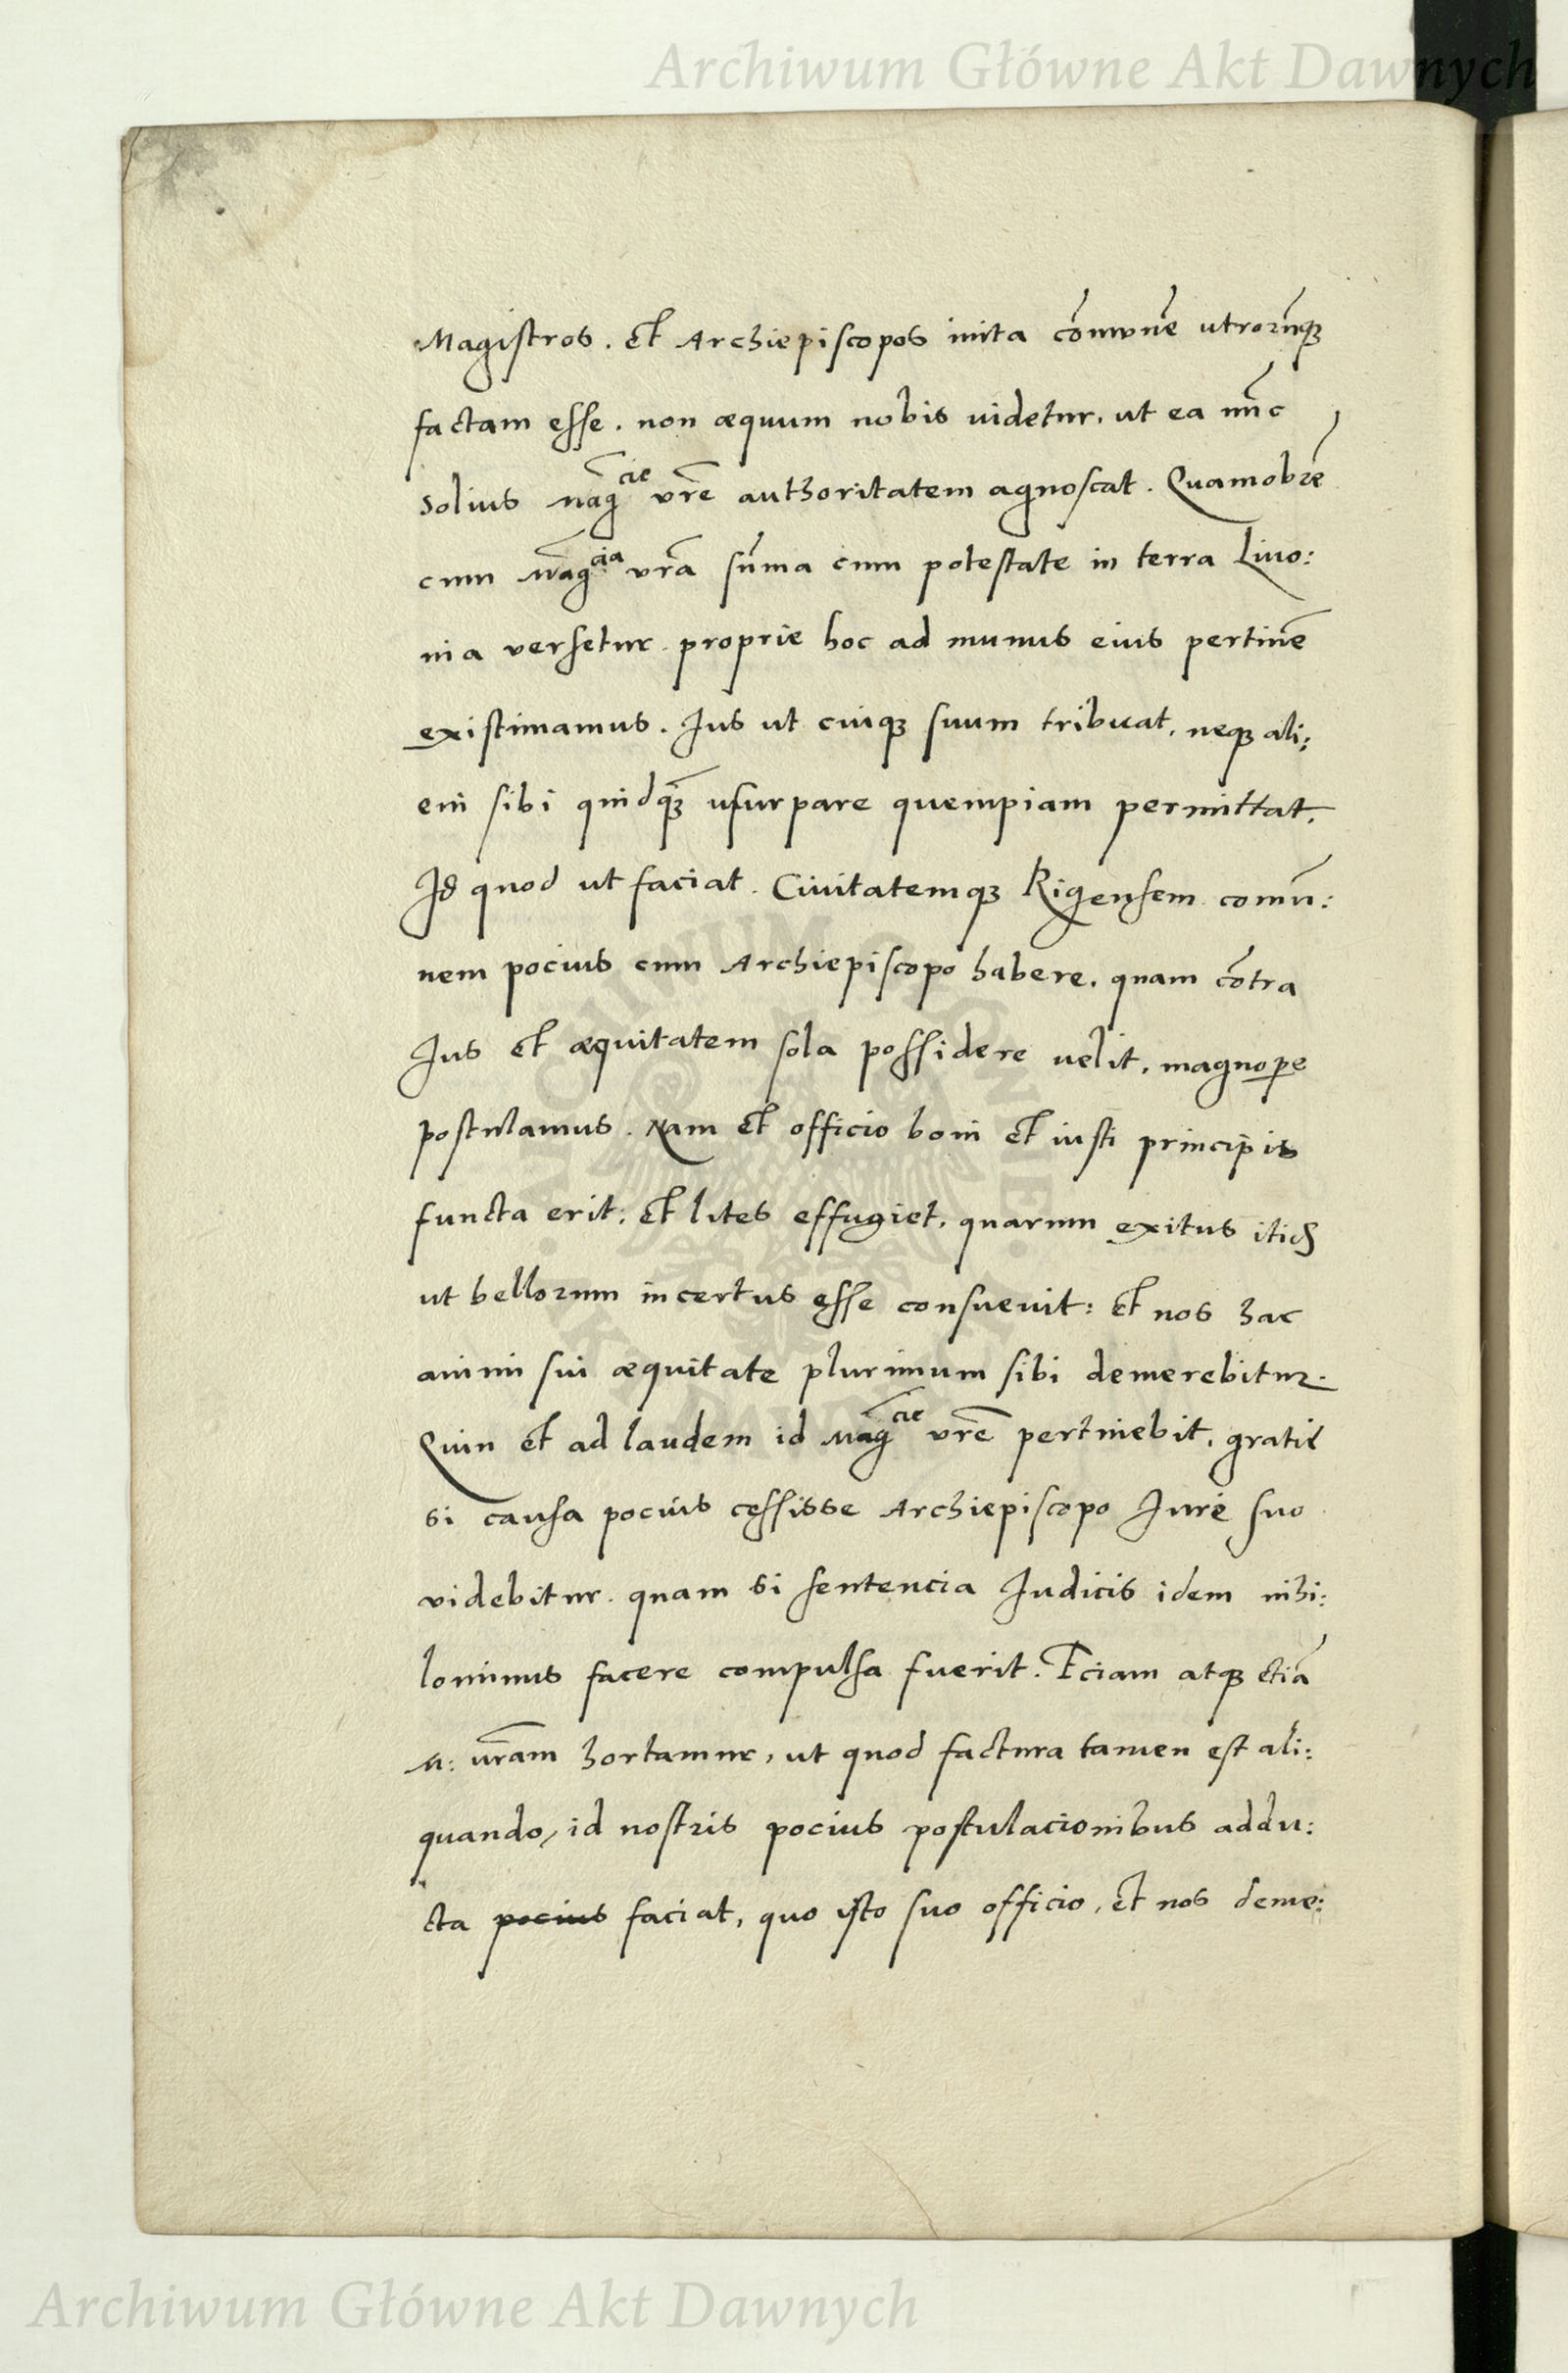 Archiwum Główne Akt Dawnych
Magistros. Et Archiepiscopos inita cōmunē utrorūq̃ꝫ
factam esse. non æquum nobis uidetur. ut ea nūc
solius Mag̃cie vrē authoritatem agnoscat. Quamobrē
cum Mag̃cia vrā sūma cum potestate in terra Liuo:
nia versetur. proprie hoc ad munus eius pertinē
existimamus. Ius ut cuiqꝫ suum tribuat, neqꝫ ali:
eni sibi quidq̃ꝫ usurpare quempiam permittat.
Id quod ut faciat. Ciuitatemqꝫ Rigensem comū:
nem pocius cum Archiepiscopo habere. quam cōtra
Ius et æquitatem sola possidere uelit, magnoꝑe
postulamus. Nam et officio boni et iusti principis
functa erit: et lites effugiet. quarum exitus itid̃
ut bellorum incertus esse consueuit: et nos hac
animi sui æquitate plurimum sibi demerebitur.
Quin et ad laudem id Mag̃cie vrē pertinebit. gratie
si causa pocius cessisse Archiepiscopo Iure suo
videbitur. quam si sentencia Iudicis idem nihi:
lominus facere compulsa fuerit. Eciam atqꝫ etiā
M: vr̄am hortamur, ut quod factura tamen est ali:
quando, id nostris pocius postulacionibus addu:
cta pocius faciat, quo isto suo officio, et nos deme:
Archiwum Główne Akt Dawnych